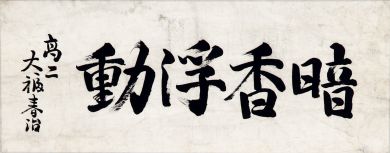 暗香浮動
高二
大福春治